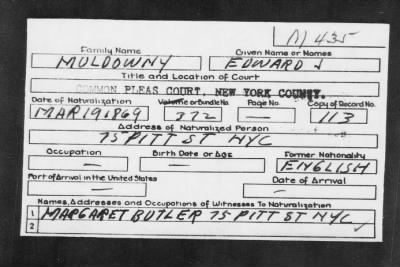 M 435
Family Name Given Name or Names
MULDOWNY EDWARD J
Title and Location of Court
COMMON PLEAS COURT, NEW YORK COUNTY.
Date of Naturalization Volume or Bundle No. Page No. Copy of Record No.
MAR 19 1869 372 — 113
Address of Naturalized Person
75 PITT ST NYC
Occupation Birth Date or Age Former Nationality
— — ENGLISH
Port of Arrival in the United States Date of Arrival
— —
Names, Addresses and Occupations of Witnesses To Naturalization
1 MARGARET BUTLER 75 PITT ST NYC
2